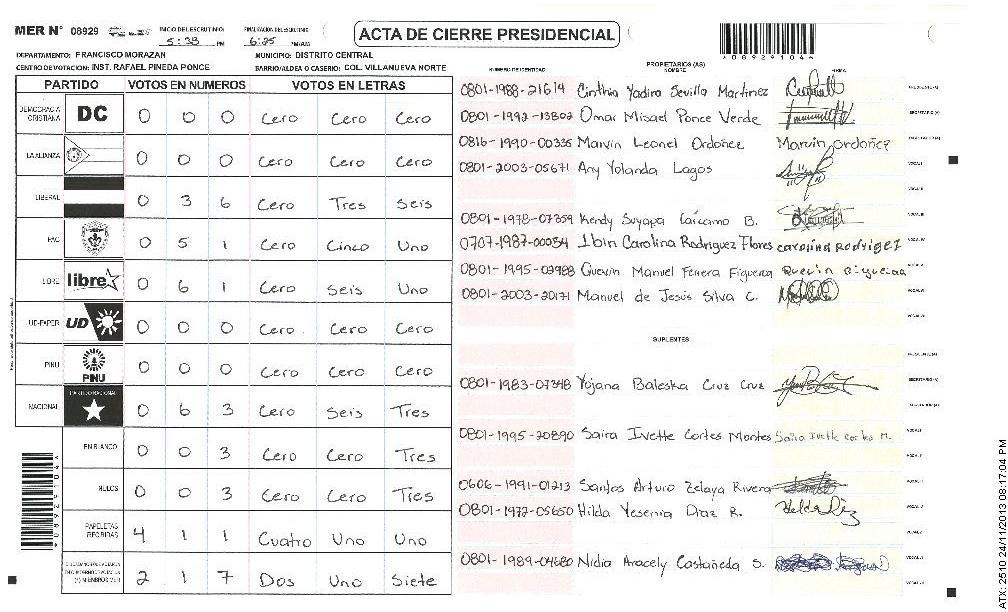 MER N° 08929 INICIO DEL ESCRUTINIO: 5:38 PM FINALIZACION DEL ESCRUTINIO: 6:25 PM/AM
ACTA DE CIERRE PRESIDENCIAL
*08929104*
DEPARTAMENTO: FRANCISCO MORAZAN MUNICIPIO: DISTRITO CENTRAL
CENTRO DE VOTACION: INST. RAFAEL PINEDA PONCE BARRIO/ALDEA O CASERIO: COL. VILLANUEVA NORTE
PARTIDO VOTOS EN NUMEROS VOTOS EN LETRAS
DEMOCRACIA CRISTIANA DC 0 0 0 Cero Cero Cero
LA ALIANZA 0 0 0 Cero Cero Cero
LIBERAL 0 3 6 Cero Tres Seis
PAC 0 5 1 Cero Cinco Uno
LIBRE libre 0 6 1 Cero Seis Uno
UD-FAPER UD 0 0 0 Cero Cero Cero
PINU PINU 0 0 0 Cero Cero Cero
NACIONAL PARTIDO NACIONAL 0 6 3 Cero Seis Tres
EN BLANCO 0 0 3 Cero Cero Tres
NULOS 0 0 3 Cero Cero Tres
PAPELETAS RECIBIDAS 4 1 1 Cuatro Uno Uno
2 1 7 Dos Uno Siete
*08929104*
NUMERO DE IDENTIDAD PROPIETARIOS (AS) NOMBRE FIRMA
0801-1988-21614 Cinthia Yadira Sevilla Martinez PRESIDENTE (A)
0801-1992-13802 Omar Misael Ponce Verde SECRETARIO (A)
0816-1990-00335 Marvin Leonel Ordoñez Marvin ordoñez
0801-2003-05671 Any Yolanda Lagos VOCAL I
VOCAL II
0801-1978-07359 Kendy Suyapa Carcamo B. VOCAL III
0707-1987-00054 Ibin Carolina Rodriguez Flores carolina Rodrigez VOCAL IV
0801-1995-03988 Guevin Manuel Ferrera Figueroa VOCAL V
0801-2003-20171 Manuel de Jesús Silva C. VOCAL VI
SUPLENTES
PRESIDENTE (A)
0801-1983-07348 Yojana Baleska Cruz Cruz SECRETARIO (A)
0801-1995-20890 Saira Ivette Cortes Montes Saira Ivette Cortes M. VOCAL I
0606-1991-01213 Santos Arturo Zelaya Rivera
0801-1977-05650 Hilda Yesenia Diaz R.
0801-1989-04680 Nidia Aracely Castañeda S.
ATX: 2510 24/11/2013 08:17:04 PM